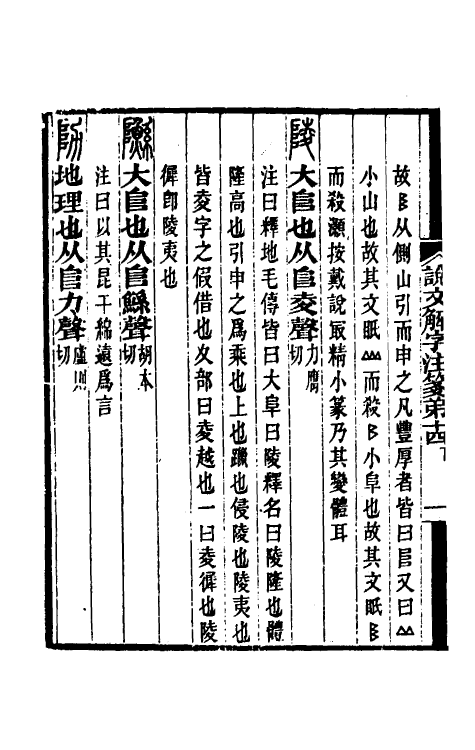 說文解字注箋第十四下
故𨸏从側山引而申之凡豐厚者皆曰𨸏又曰山
小山也故其文眂山而殺𨸏小阜也故其文眂𨸏
而殺灝按戴說㝡精小篆乃其變體耳
陵大𨸏也从𨸏夌聲力膺切
注曰釋地毛傳皆曰大阜曰陵釋名曰陵隆也體
隆高也引申之爲乘也上也躐也侵陵也陵夷也
皆夌字之假借也夊部曰夌越也一曰夌徲也陵
徲卽陵夷也
䲗大𨸏也从𨸏鯀聲胡本切
注曰以其昆干綿遠爲言
阞地理也从𨸏力聲盧則切